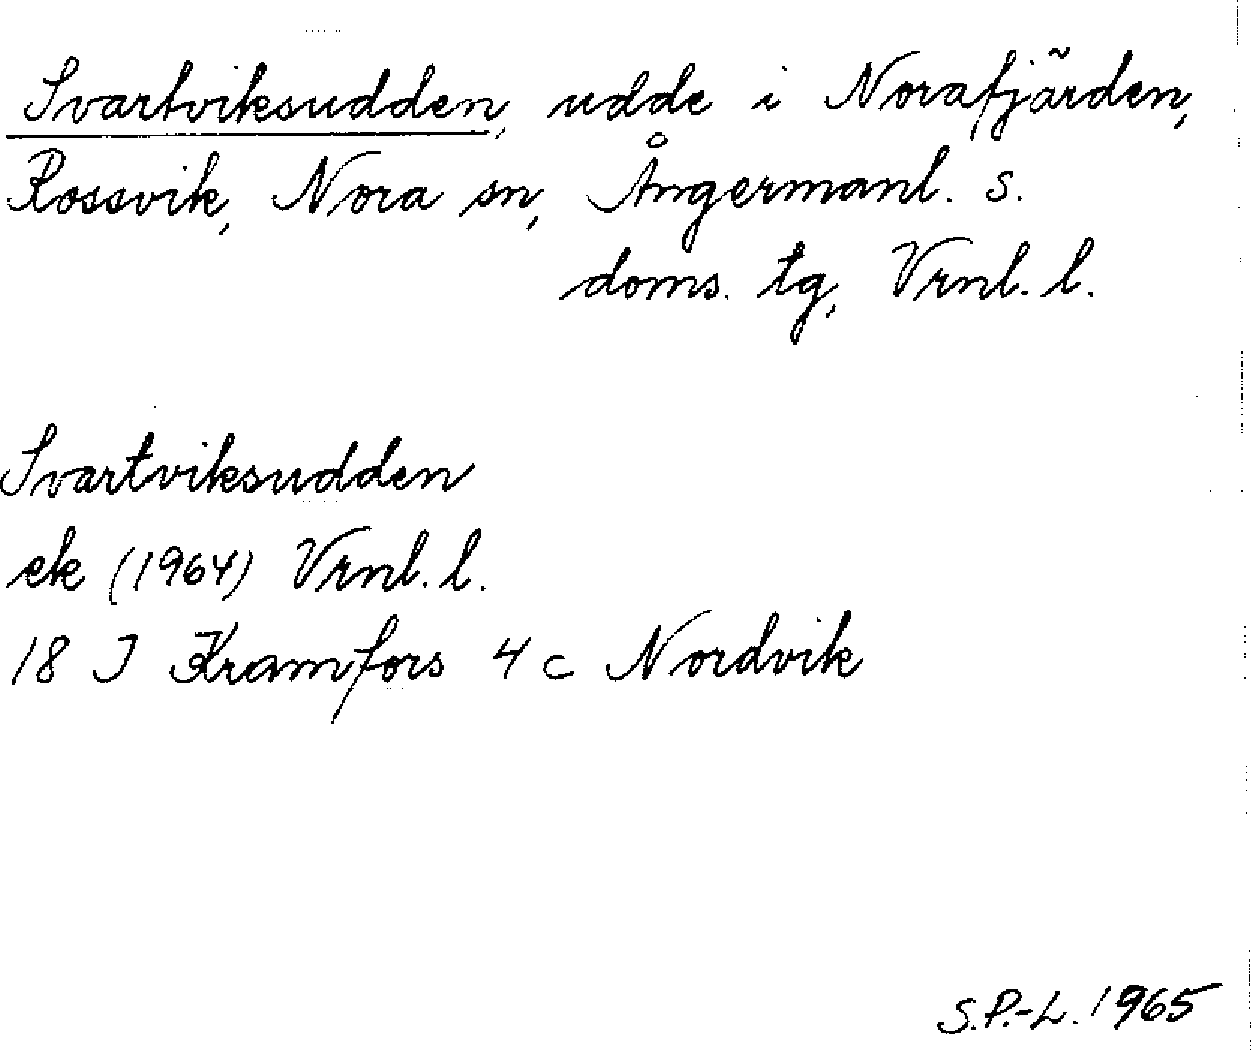 Svartviksudden, udde i Norafjärden,
Rossvik, Nora sn, Ångermanl. s.
doms. tg, Vrnl. l.
Svartviksudden
ek (1964) Vrnl. l.
18 I Kramfors 4 c Nordvik
S.P.-L. 1965